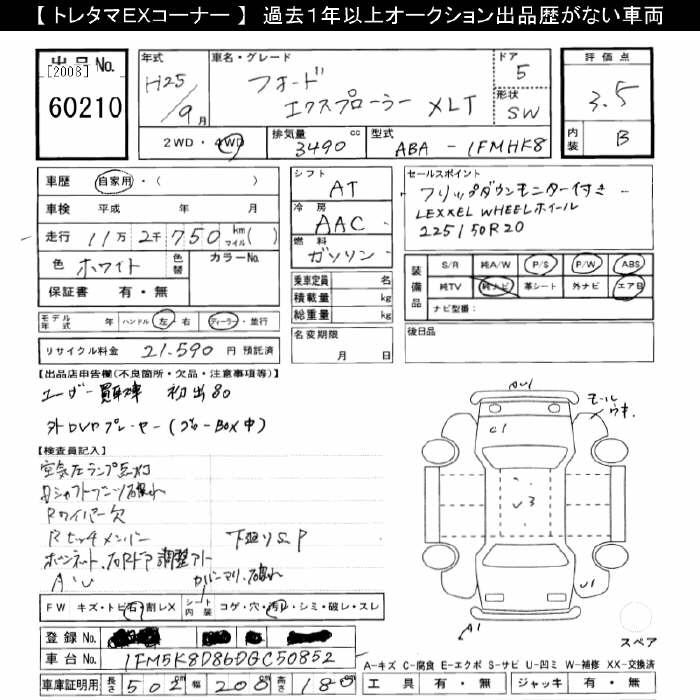 【 トレタマEXコーナー 】 過去１年以上オークション出品歴がない車両
出品 No.
[2008]
60210
年式
H25
/9月
車名・グレード
フォード
エクスプローラー XLT
ドア
5
形状
SW
評価点
3.5
内装
B
2WD・4WD
排気量
3490 cc
型式
ABA - 1FMHK8
車歴
自家用・( )
車検 平成 年 月
走行 11万 2千 750 km マイル( )
色 ホワイト
色替
カラーNo.
保証書 有・無
シフト
AT
冷房
AAC
燃料
ガソリン
乗車定員 名
積載量 kg
総重量 kg
名変期限
月 日
セールスポイント
フリップダウンモニター付き
LEXXEL WHEELホイール
225150R20
装備品
S/R 純A/W P/S P/W ABS
純TV 純ナビ 革シート 外ナビ エアB
ナビ型番:
後日品
モデル年式 年 ハンドル 左・右 ディーラー・並行
リサイクル料金 21,590 円 預託済
【出品店申告欄(不良箇所・欠品・注意事項等)】
ユーザー買取車 初出80
外DVDプレーヤー(グローBOX中)
【検査員記入】
空気圧ランプ点灯
Rワイパー欠
下廻りS、P
ボンネット、右Rドア調整アリ
A'U
カバーマリ、破れ
FW キズ・トビ石・割レX
シート内装 コゲ・穴・汚レ・シミ・破レ・スレ
登録 No.
車台 No. 1FM5K8D86DGC50852
車庫証明用 長さ 502 幅 200 高さ 180
モールウキ
AU1
C1
V3
U1
A1
スペア
A-キズ C-腐食 E-エクボ S-サビ U-凹ミ W-補修 XX-交換済
工具 有・無 ジャッキ 有・無